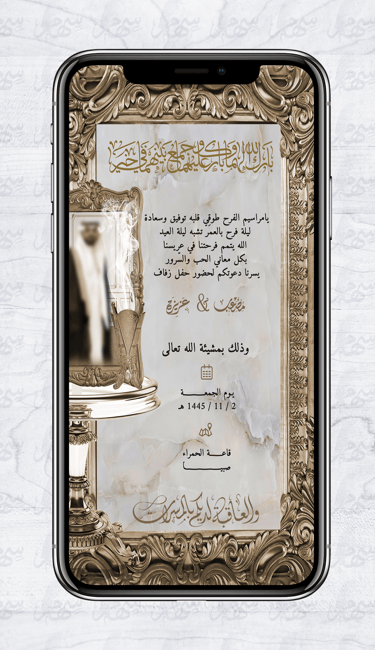 بارك الله لهما وبارك عليهما وجمع بينهما في خير
يامراسيم الفرح طوفي قلبه توفيق وسعادة
ليلة فرح بالعمر تشبه ليلة العيد
الله يتمم فرحتنا في عريسنا
بكل معاني الحب والسرور
يسرنا دعوتكم لحضور حفل زفاف
& عزيزة
وذلك بمشيئة الله تعالى
يوم الجمعة
2 / 11 / 1445 هـ
قاعة الحمراء
صبيا
والعاقبة لديكم بالمسرات